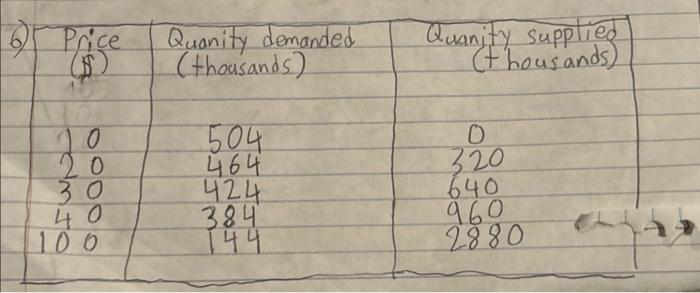 6) Price Quanity demanded Quanity supplied
($) (thousands) (thousands)
10 504 0
20 464 320
30 424 640
40 384 960
100 144 2880